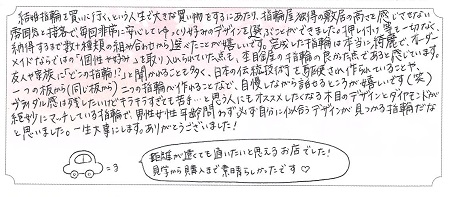 結婚指輪を買いに行くという人生で大きな買い物をするにあたり、指輪屋独特の敷居の高さを感じさせない
雰囲気と接客で毎回非常に安心してゆっくり好みのデザインを選ぶことができました。押し付け等も一切なく、
納得するまで数十種類の組み合わせから選べたことが嬉しいです。完成した指輪は本当に綺麗で、オーダー
メイドならではの「個性や好み」を取り入れられていた点も、杢目金屋の指輪の良かった点であると感じています。
友人や家族に「どこの指輪!?」と聞かれることも多く、日本の伝統技術で作られていることや、
一つの板から(同じ板から)二つの指輪が作れることなど、自慢しながら話せるところが嬉しいです(笑)
ブライダル感は残したいけどキラキラすぎても苦手…と思う人にもオススメしたくなる木目のデザインとダイヤモンドが
絶妙にマッチしている指輪で、男性女性年齢問わず必ず自分に似合うデザインが見つかる指輪だな
と思いました。一生大事にします。ありがとうございました!
距離が遠くても通いたいと思えるお店でした!
見学から購入まで素晴らしかったです♡